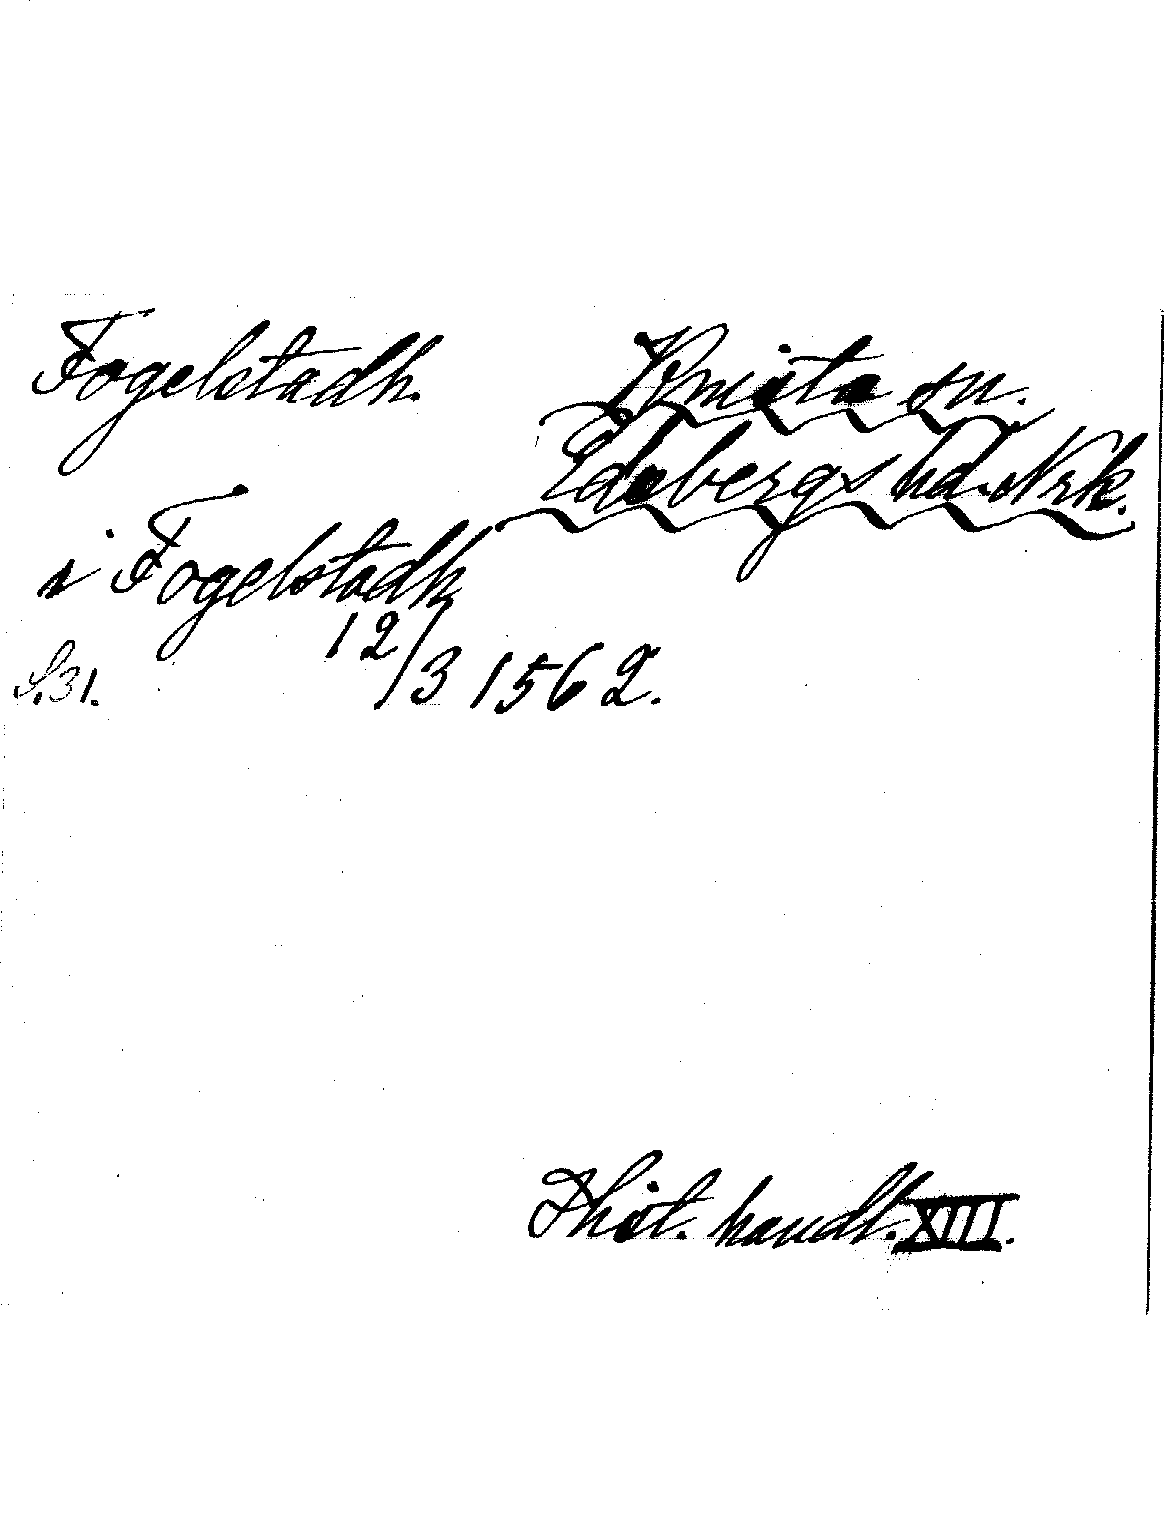 Fogelstadh.
Knista sn.
Edsbergs hd. Nrk.
i Fogelstadh
12/3 1562.
S. 31.
Hist. handl. XIII.